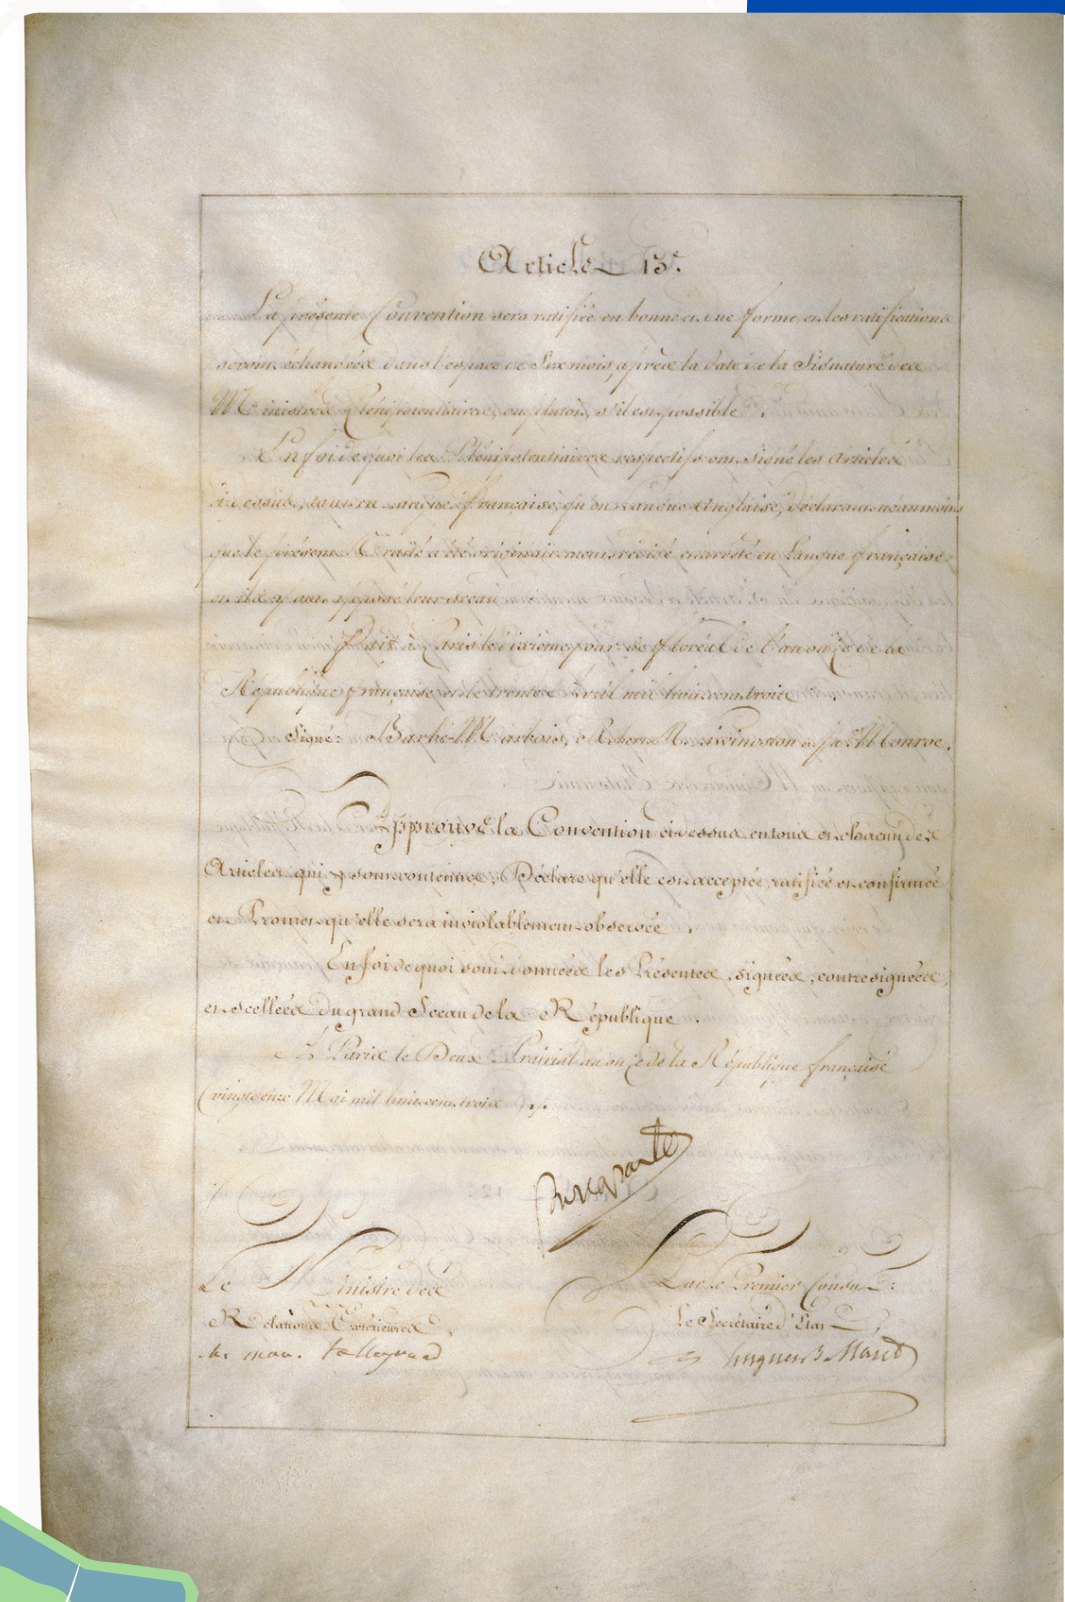 Article 13.e
La présente Convention sera ratifiée en bonne et due forme, et les ratifications
seront échangées dans l'espace de Six mois après la date de la Signature des
Ministres Plénipotentiaires, ou plutôt, s'il est possible.
En foi de quoi les Plénipotentiaires respectifs ont Signé les articles
ci dessus, tant en Langue française, qu'en Langue Anglaise, déclarant néanmoins
que le présent Traité a été originairement rédigé et arrêté en Langue française
et ils y ont apposé leur sceau
Fait à Paris le dixième jour de floréal de l'an onze de la
République française et le trente Avril mil huit cent trois.
Signé: Barbé-Marbois, Robert R. Livingston et Ja.s Monroe.
Approuve la Convention ci dessus en tous et chacun des
Articles qui y sont contenus; Déclare qu'elle est acceptée, ratifiée et confirmée
et Promet qu'elle sera inviolablement observée.
En foi de quoi sont données les Présentes, signées, contresignées
et scellées du grand Sceau de la République.
À Paris le Deux Prairial an onze de la République française
(vingt deux Mai mil huit cent trois).
Bonaparte
Le Ministre des
Relations Extérieures,
ch. mau. talleyrand
Par le Premier Consul:
Le Secrétaire d'Etat,
hugues B. Maret